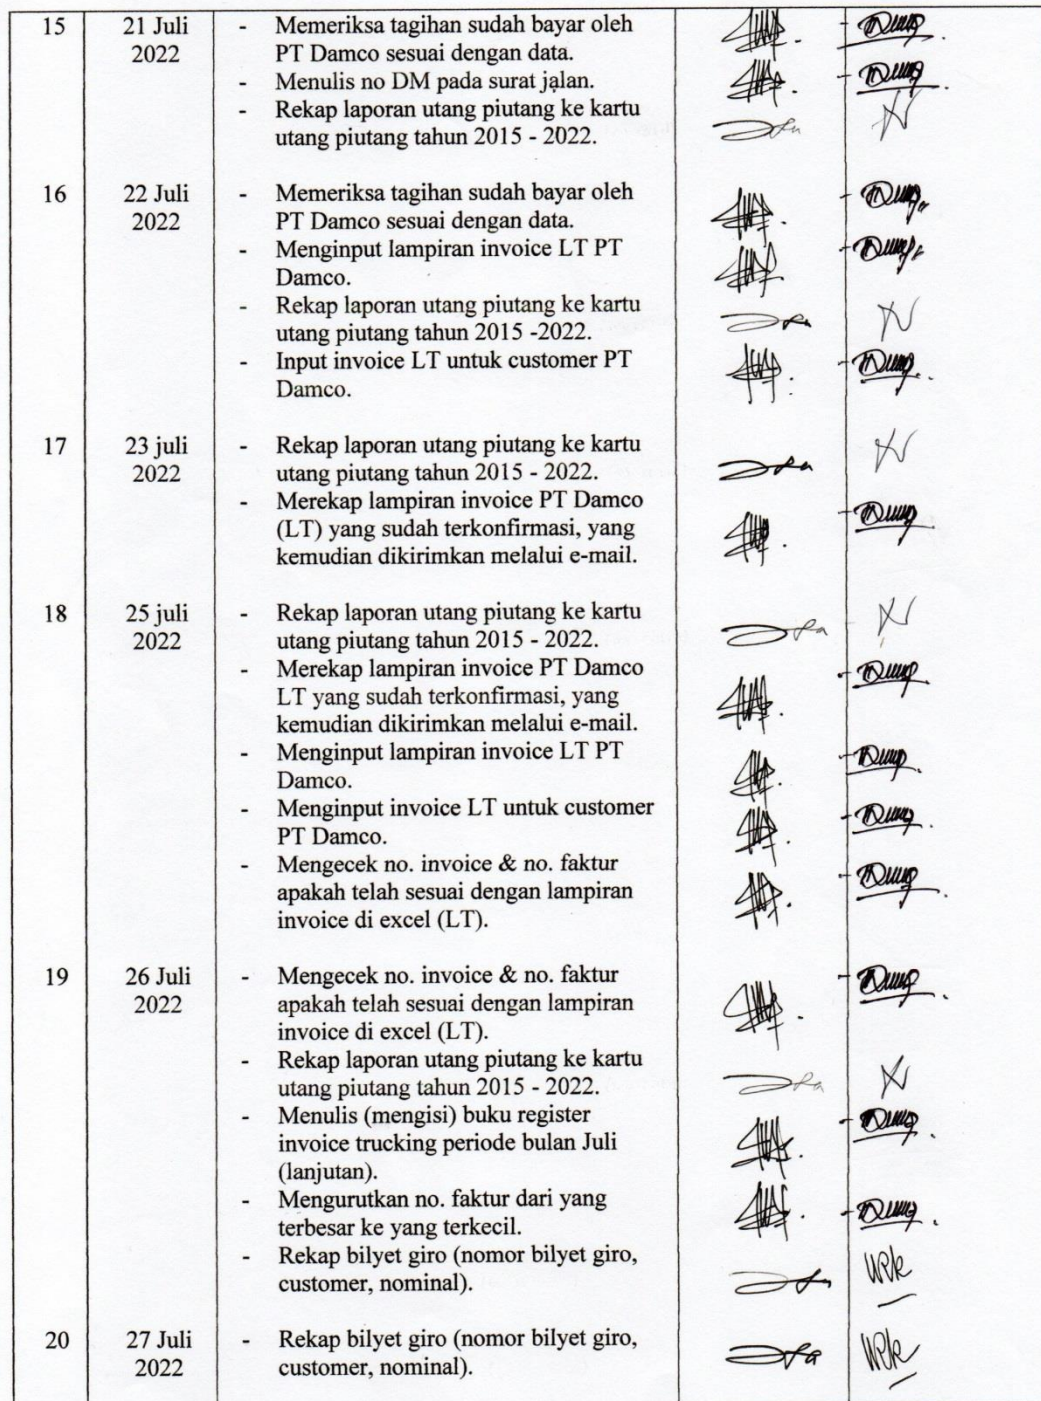 15
21 Juli
2022
- Memeriksa tagihan sudah bayar oleh
PT Damco sesuai dengan data.
- Menulis no DM pada surat jalan.
- Rekap laporan utang piutang ke kartu
utang piutang tahun 2015 - 2022.
16
22 Juli
2022
- Memeriksa tagihan sudah bayar oleh
PT Damco sesuai dengan data.
- Menginput lampiran invoice LT PT
Damco.
- Rekap laporan utang piutang ke kartu
utang piutang tahun 2015 -2022.
- Input invoice LT untuk customer PT
Damco.
17
23 juli
2022
- Rekap laporan utang piutang ke kartu
utang piutang tahun 2015 - 2022.
- Merekap lampiran invoice PT Damco
(LT) yang sudah terkonfirmasi, yang
kemudian dikirimkan melalui e-mail.
18
25 juli
2022
- Rekap laporan utang piutang ke kartu
utang piutang tahun 2015 - 2022.
- Merekap lampiran invoice PT Damco
LT yang sudah terkonfirmasi, yang
kemudian dikirimkan melalui e-mail.
- Menginput lampiran invoice LT PT
Damco.
- Menginput invoice LT untuk customer
PT Damco.
- Mengecek no. invoice & no. faktur
apakah telah sesuai dengan lampiran
invoice di excel (LT).
19
26 Juli
2022
- Mengecek no. invoice & no. faktur
apakah telah sesuai dengan lampiran
invoice di excel (LT).
- Rekap laporan utang piutang ke kartu
utang piutang tahun 2015 - 2022.
- Menulis (mengisi) buku register
invoice trucking periode bulan Juli
(lanjutan).
- Mengurutkan no. faktur dari yang
terbesar ke yang terkecil.
- Rekap bilyet giro (nomor bilyet giro,
customer, nominal).
20
27 Juli
2022
- Rekap bilyet giro (nomor bilyet giro,
customer, nominal).